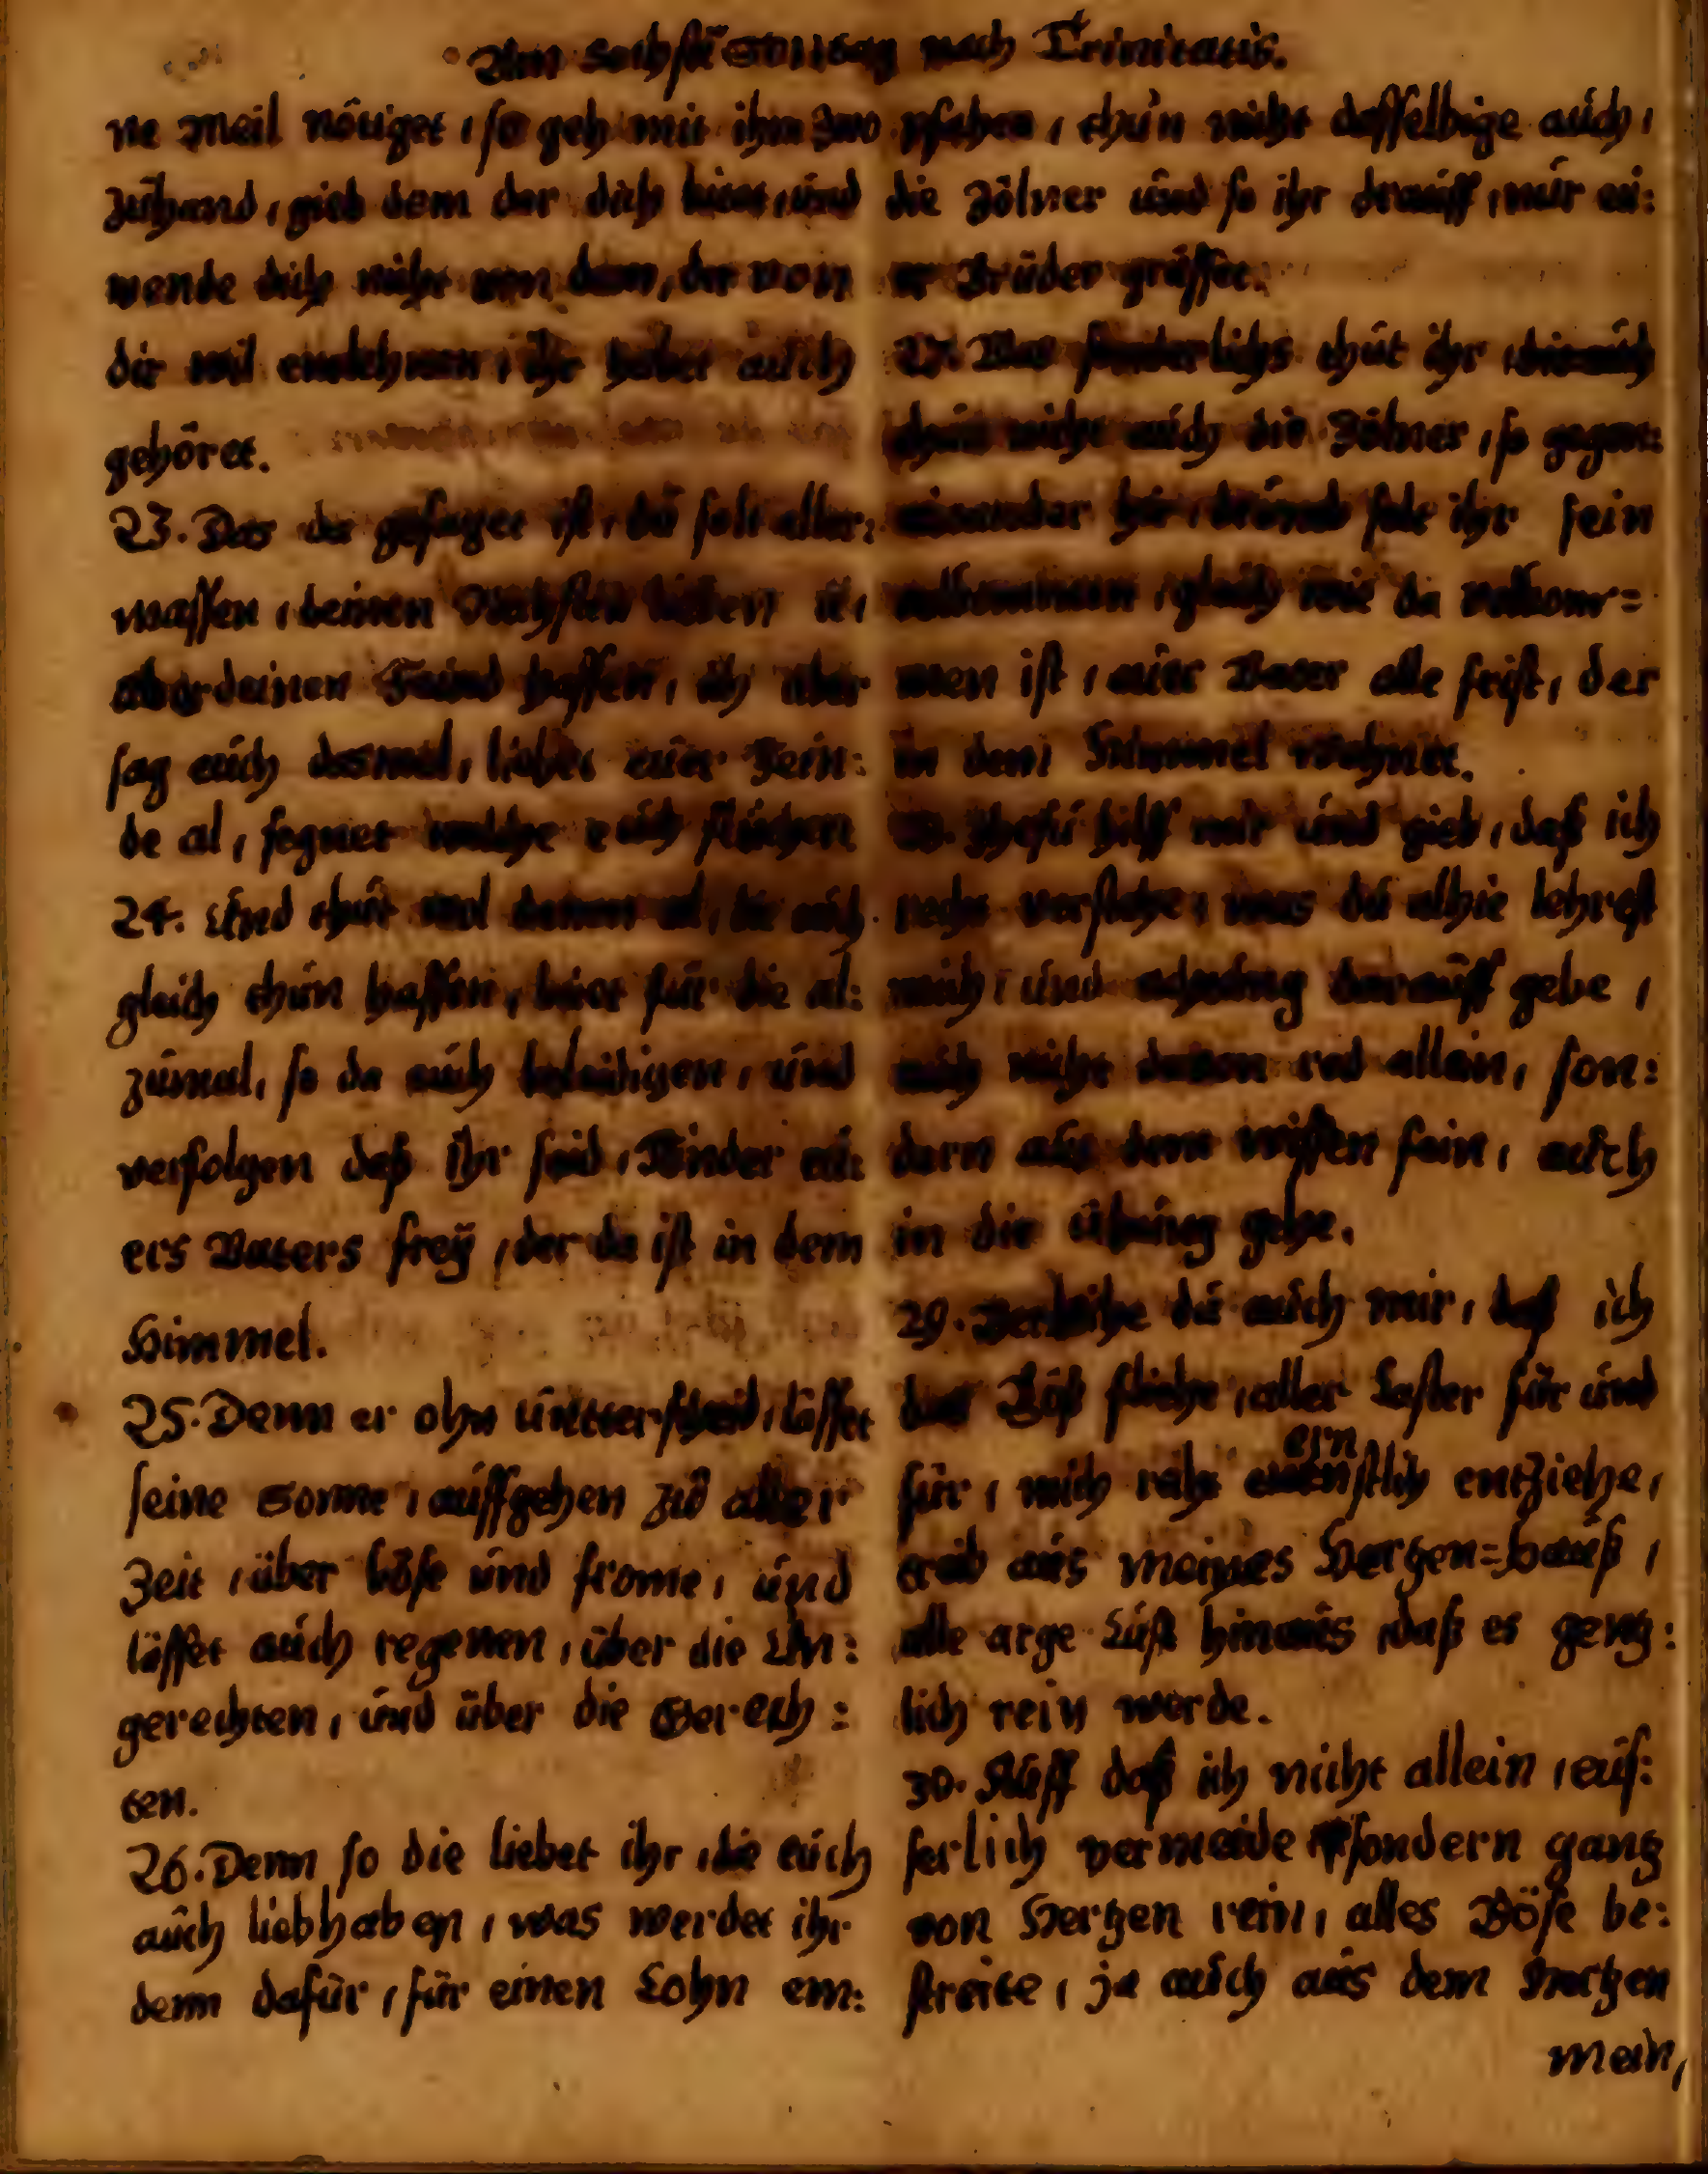 Am Sechstē Sontag nach Trinitatis.
ne Meil nötiget, so geh mit ihm zwo
zuhand, gieb dem der dich bitt, und
wende dich nicht von dem, der von
dir wil entlehnen, ihr habet auch
gehöret.
23. Das da gesaget ist, du solt aller:
massen, deinen Nechsten lieben u,
aber deinen Feind hassen, ich aber
sag euch dasmal, liebet eüer Fein:
de al, segnet welche euch fluchen
24. Und thut wol denen al, die euch
gleich thun hassen, bitet für die al:
zumal, so da euch beleidigen, und
verfolgen daß ihr seid, Kinder eü:
ers Vaters freÿ, der da ist in dem
Himmel.
25. Denn er ohn untterscheid, lösset
seine Sonne, auffgehen zu aller
Zeit, über böse und frome, und
lösset auch regenen, über die Un:
gerechten, und über die Gerech:
ten.
26. Denn so die liebet ihr, die euch
auch liebhaben, was werdet ihr
denn dafür, für einen Lohn em:
pfahen, thun nicht dasselbige auch,
die Zölner und so ihr drauff, nur eü:
er Brüder grüsset.
27. Was sonderlichs thut ihr
thun nicht auch die Zölner, so gegen:
einander hir, drümb solt ihr sein
volkommen, gleich wie da volkom=
men ist, eüer Vater alle frist, der
in dem Himmel wohnet.
28. Jhesu hilff mir und gieb, daß ich
recht verstehe, was du alhie lehrest
mich, und achtung darauff gebe,
auch nicht davon red allein, son:
dern aus dem wissen fein, auch
in die übung gehe.
29. Verleihe du auch mir, daß ich
das Böß fliehe, aller Laster für und
für, mich recht ernstlich entziehe,
treib aus meines Hertzen=hauß,
alle arge Lust hinaus daß es gentz:
lich rein werde.
30. Auff daß ich nicht allein, eüs:
serlich vermeide sondern gantz
von Hertzen rein, alles Böse be:
streite, ja auch aus dem Hertzen
mein,